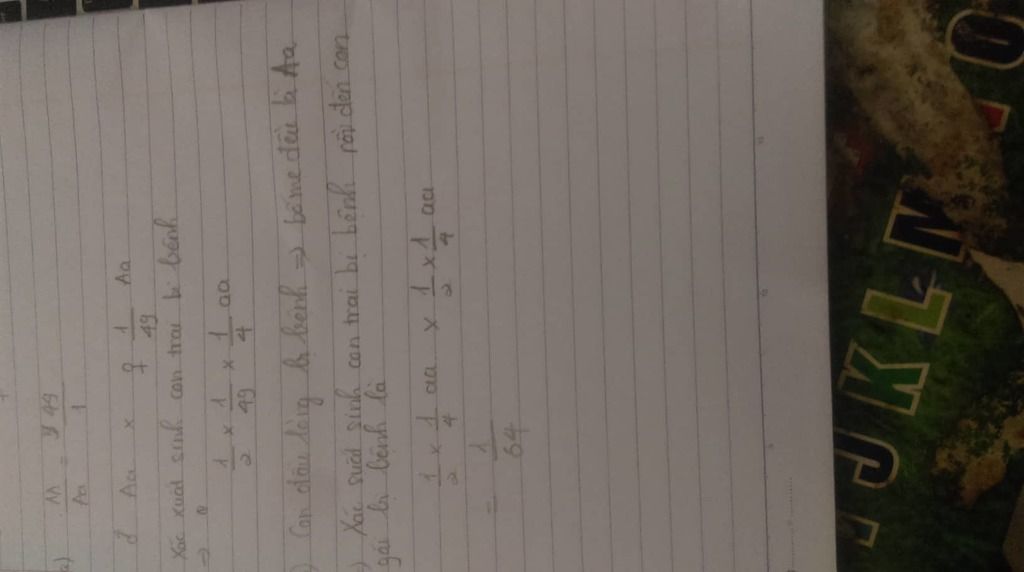 a) AA/Aa = 49/1
♂ Aa x ♀ 1/49 Aa
Xác xuất sinh con trai bị bệnh
=> 1/2 x 1/49 x 1/4 aa
) Con đầu lòng bị bệnh => bố mẹ đều bị Aa
) Xác suất sinh con trai bị bệnh rồi đến con
gái bị bệnh là
1/2 x 1/4 aa x 1/2 x 1/4 aa
= 1/64
JKLM